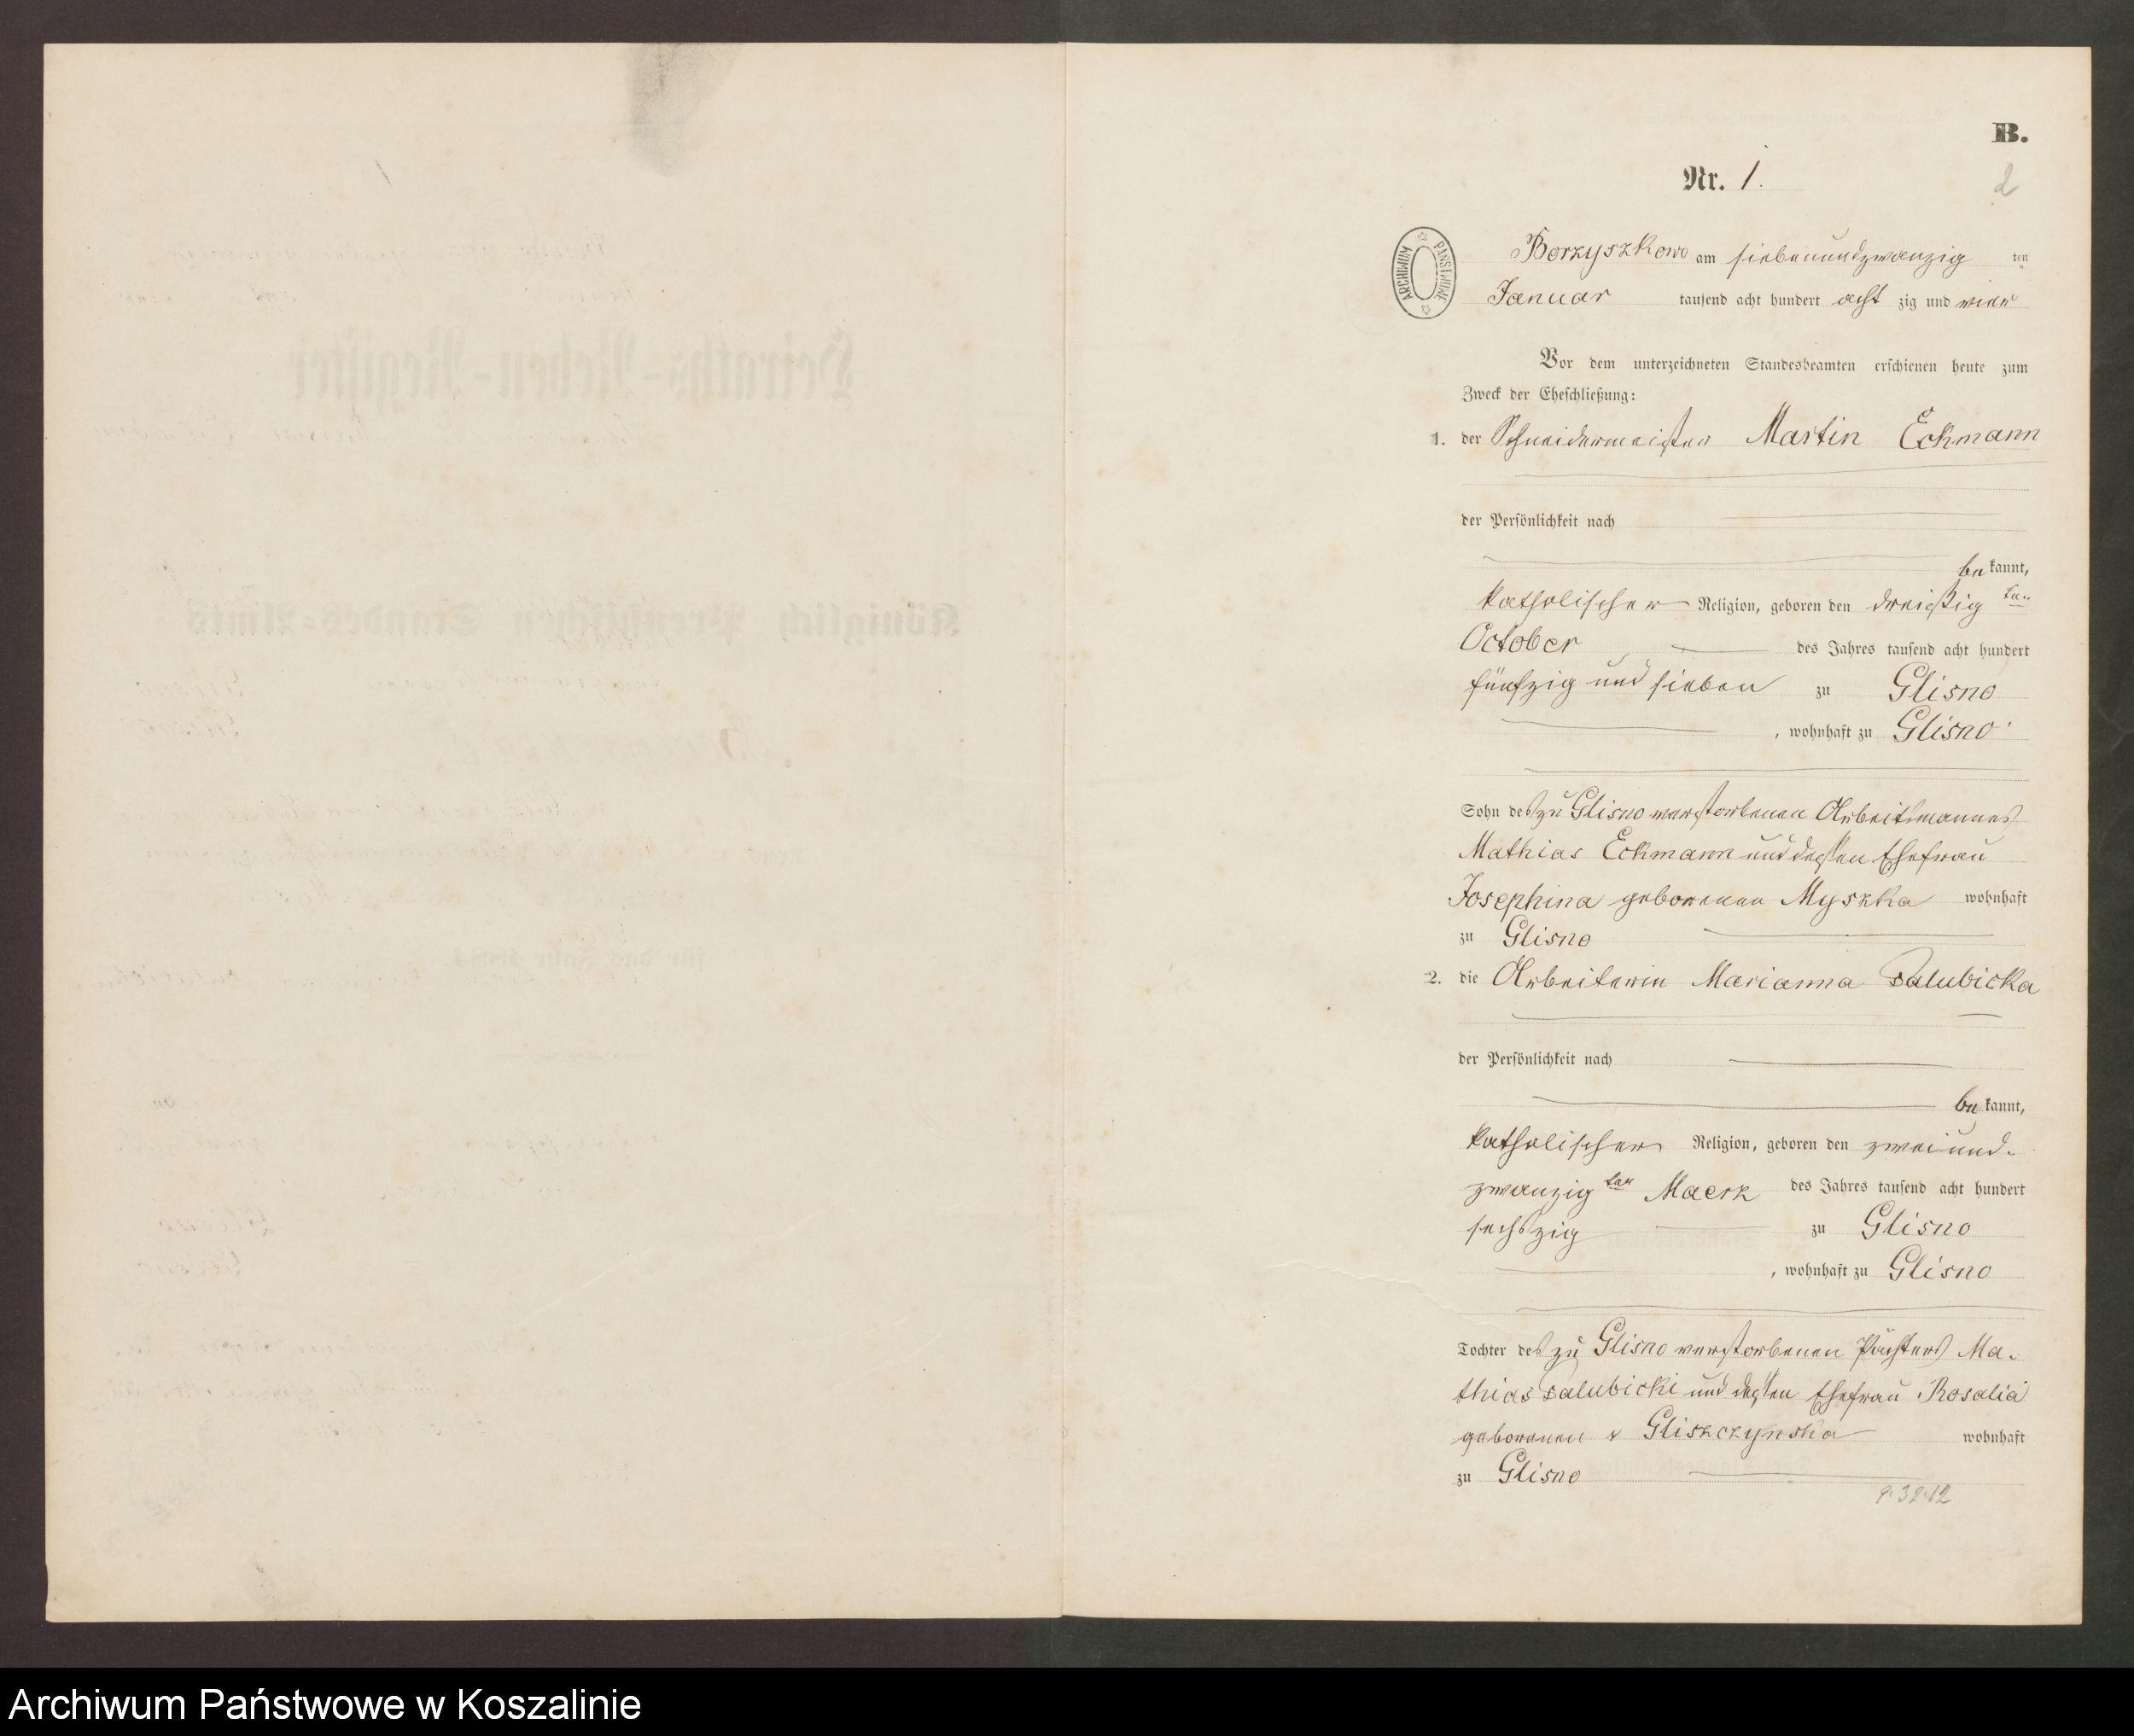 B.
Nr. 1.
2
ARCHIWUM PAŃSTWOWE
Borzyszkowo am siebenundzwanzig ten
Januar tausend acht hundert acht zig und vier
Vor dem unterzeichneten Standesbeamten erschienen heute zum
Zweck der Eheschließung:
1. der Schneidermeister Martin Eckmann
der Persönlichkeit nach
be kannt,
katholischer Religion, geboren den dreißig ten
October des Jahres tausend acht hundert
fünfzig und sieben zu Glisno
, wohnhaft zu Glisno
Sohn des zu Glisno verstorbenen Arbeitsmannes
Mathias Eckmann und dessen Ehefrau
Josephina geborenen Myszka wohnhaft
zu Glisno
2. die Arbeiterin Marianna Salubicka
der Persönlichkeit nach
be kannt,
katholischer Religion, geboren den zweiund-
zwanzig ten Maerz des Jahres tausend acht hundert
sechszig zu Glisno
, wohnhaft zu Glisno
Tochter des zu Glisno verstorbenen Pächters Ma-
thias Salubicki und dessen Ehefrau Rosalia
geborenen v Gliszczynska wohnhaft
zu Glisno
Heiraths-Neben-Register
Königlich Preußischen Standes-Amts
für das Jahr 1884.
Archiwum Państwowe w Koszalinie